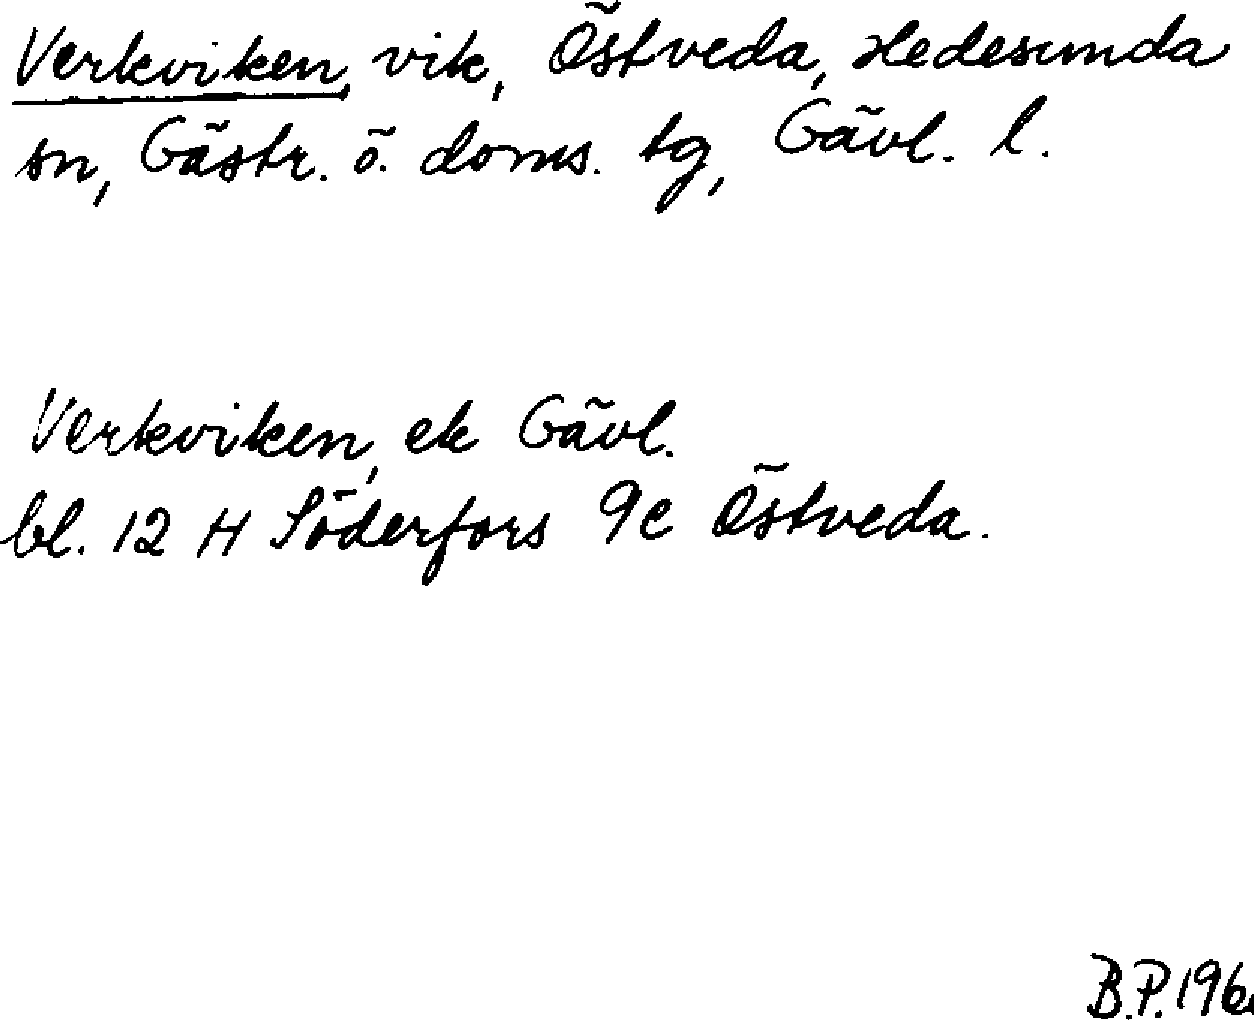 Verkviken, vik, Östveda, Hedesunda
sn, Gästr. ö. doms. tg, Gävl. l.
Verkviken, ek Gävl.
bl. 12 H Söderfors 9c Östveda.
B.P.